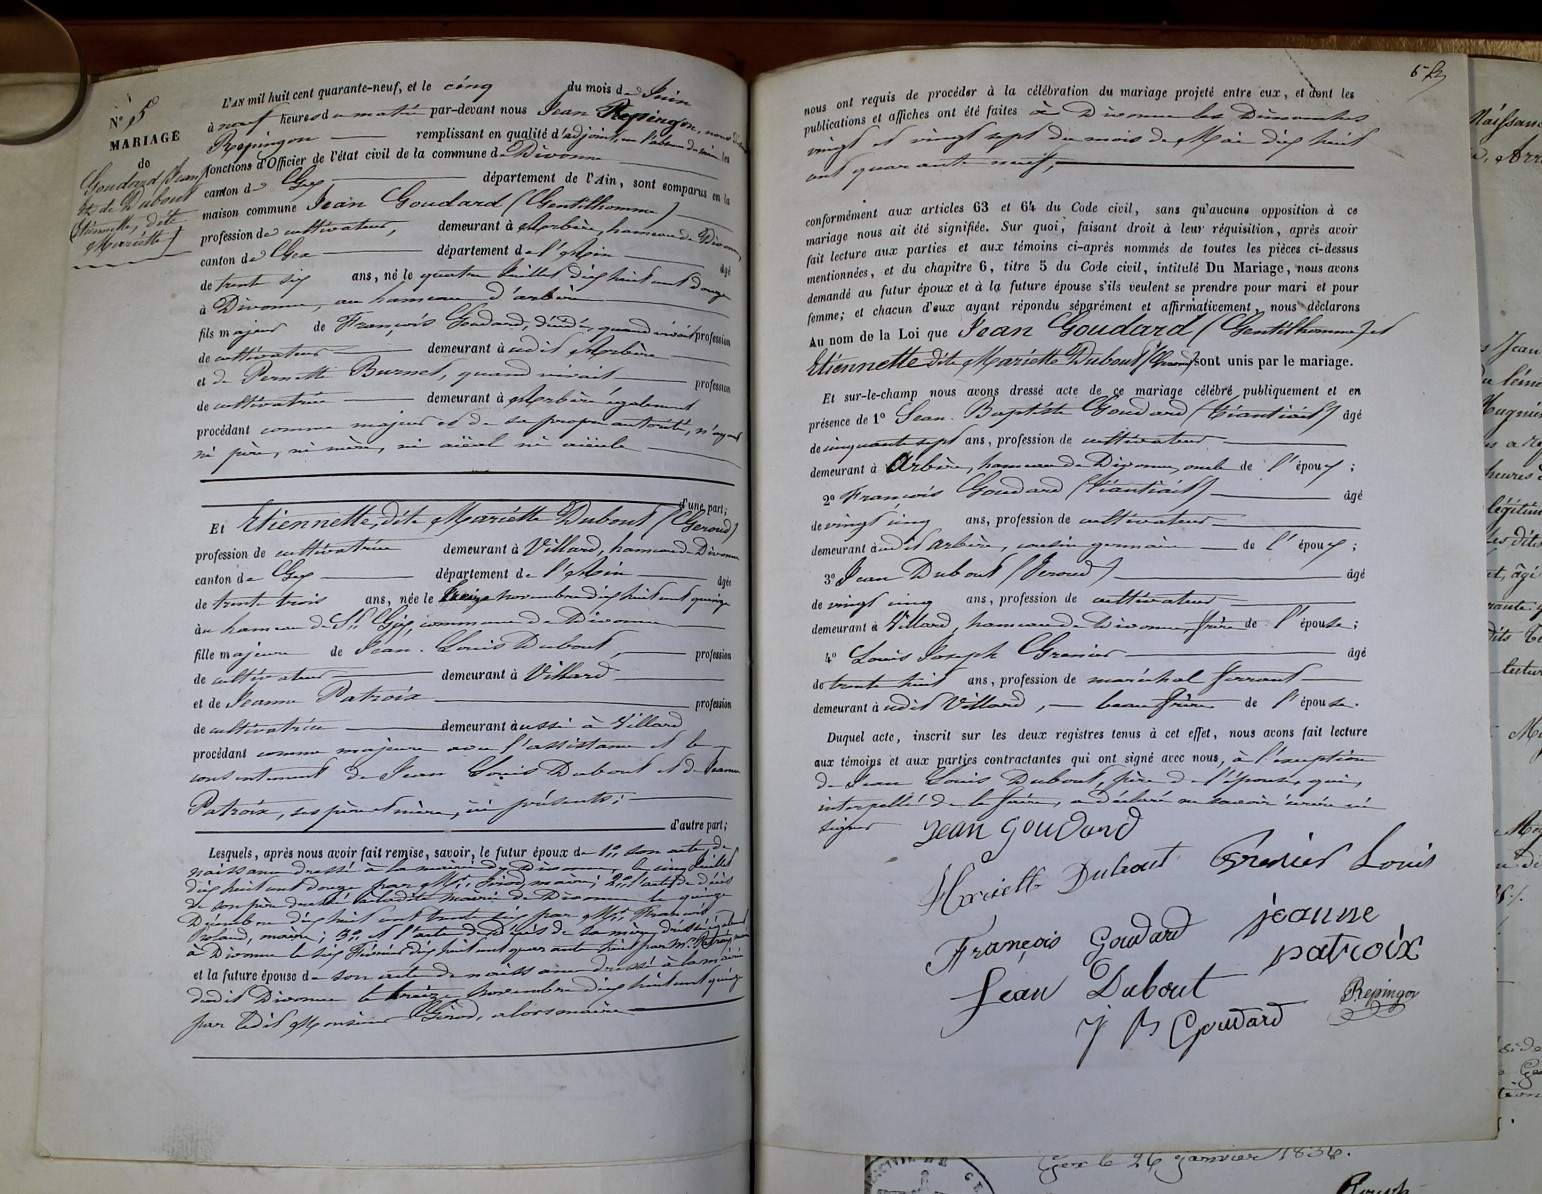 N° 5
MARIAGE
de
Goudard Jean
et de Dubout
Etiennette, dite
Mariette
L'AN mil huit cent quarante-neuf, et le cinq du mois de Juin
à neuf heures du matin par-devant nous Jean Repingon, nous
Repingon remplissant en qualité d'adjoint, en l'absence du maire les
fonctions d'Officier de l'état civil de la commune de Divonne
canton de Gex département de l'Ain, sont comparus en la
maison commune Jean Goudard (Gentilhomme)
profession de cultivateur, demeurant à Arbère, hameau de Divonne
canton de Gex département de l'Ain âgé
de trente six ans, né le quatre Juillet dix huit cent douze
à Divonne, au hameau d'arbère
fils majeur de François Goudard, décédé, quand vivait profession
de cultivateur demeurant à udit Arbère
et de Pernette Burnet, quand vivait profession
de cultivatrice demeurant à Arbère également
procédant comme majeur et de sa propre autorité, n'ayant
ni père, ni mère, ni aïeul ni aïeule
d'une part;
Et Etiennette, dite Mariette Dubout (Geroud)
profession de cultivatrice demeurant à Villard, hameau de Divonne
canton de Gex département de l'Ain âgée
de trente trois ans, née le treize novembre dix huit cent quinze
au hameau de St. Gix, commune de Divonne
fille majeure de Jean-Louis Dubout, profession
de cultivateur demeurant à Villard
et de Jeanne Patroix profession
de cultivatrice demeurant aussi à Villard
procédant comme majeure avec l'assistance et le
consentement de Jean Louis Dubout et de Jeanne
Patroix, ses père et mère, ici présents;
d'autre part;
Lesquels, après nous avoir fait remise, savoir, le futur époux de 1° son acte de
naissance dressé à la mairie de Divonne, le cinq Juillet
dix huit cent douze par Mr. Girod, maire; 2° l'acte de décès
de son père dressé à ladite mairie de Divonne le quinze
Décembre dix huit cent trente six par Mr. François
Roland, maire; 3° et l'acte de Décès de sa mère, dressé également
à Divonne le six Février dix huit cent quarante huit par Mr.
et la future épouse de son acte de naissance dressé à la mairie
dudit Divonne le treize novembre dix huit cent quinze
par ledit Monsieur Girod, alors maire
nous ont requis de procéder à la célébration du mariage projeté entre eux, et dont les
publications et affiches ont été faites à Divonne les Dimanches
vingt et vingt sept du mois de Mai dix huit
cent quarante neuf,
conformément aux articles 63 et 64 du Code civil, sans qu'aucune opposition à ce
mariage nous ait été signifiée. Sur quoi, faisant droit à leur réquisition, après avoir
fait lecture aux parties et aux témoins ci-après nommés de toutes les pièces ci-dessus
mentionnées, et du chapitre 6, titre 5 du Code civil, intitulé Du Mariage, nous avons
demandé au futur époux et à la future épouse s'ils veulent se prendre pour mari et pour
femme; et chacun d'eux ayant répondu séparément et affirmaticement, nous déclarons
Au nom de la Loi que Jean Goudard (Gentilhomme) et
Etiennette dite Mariette Dubout (Geroud) sont unis par le mariage.
Et sur-le-champ nous avons dressé acte de ce mariage célébré publiquement et en
présence de 1° Jean-Baptiste Goudard âgé
de cinquante sept ans, profession de cultivateur
demeurant à Arbère, hameau de Divonne, oncle de l'époux;
2° François Goudard âgé
de vingt cinq ans, profession de cultivateur
demeurant audit Arbère, cousin germain de l'époux;
3° Jean Dubout (Jeroud) âgé
de vingt cinq ans, profession de cultivateur
demeurant à Villard, hameau de Divonne, frère de l'épouse;
4° Louis Joseph Grenier âgé
de trente huit ans, profession de maréchal ferrant
demeurant à udit Villard, beau frère de l'épouse.
Duquel acte, inscrit sur les deux registres tenus à cet effet, nous avons fait lecture
aux témoins et aux parties contractantes qui ont signé avec nous, à l'exception
de Jean Louis Dubout, père de l'épouse, qui,
interpellé de le faire, a déclaré ne savoir écrire ni
signer
jean goudard
Mariette Dubout Grenier Louis
François Goudard jeanne
patroix
Jean Dubout
Repingon
J B Goudard
Gex le 26 janvier 1836.